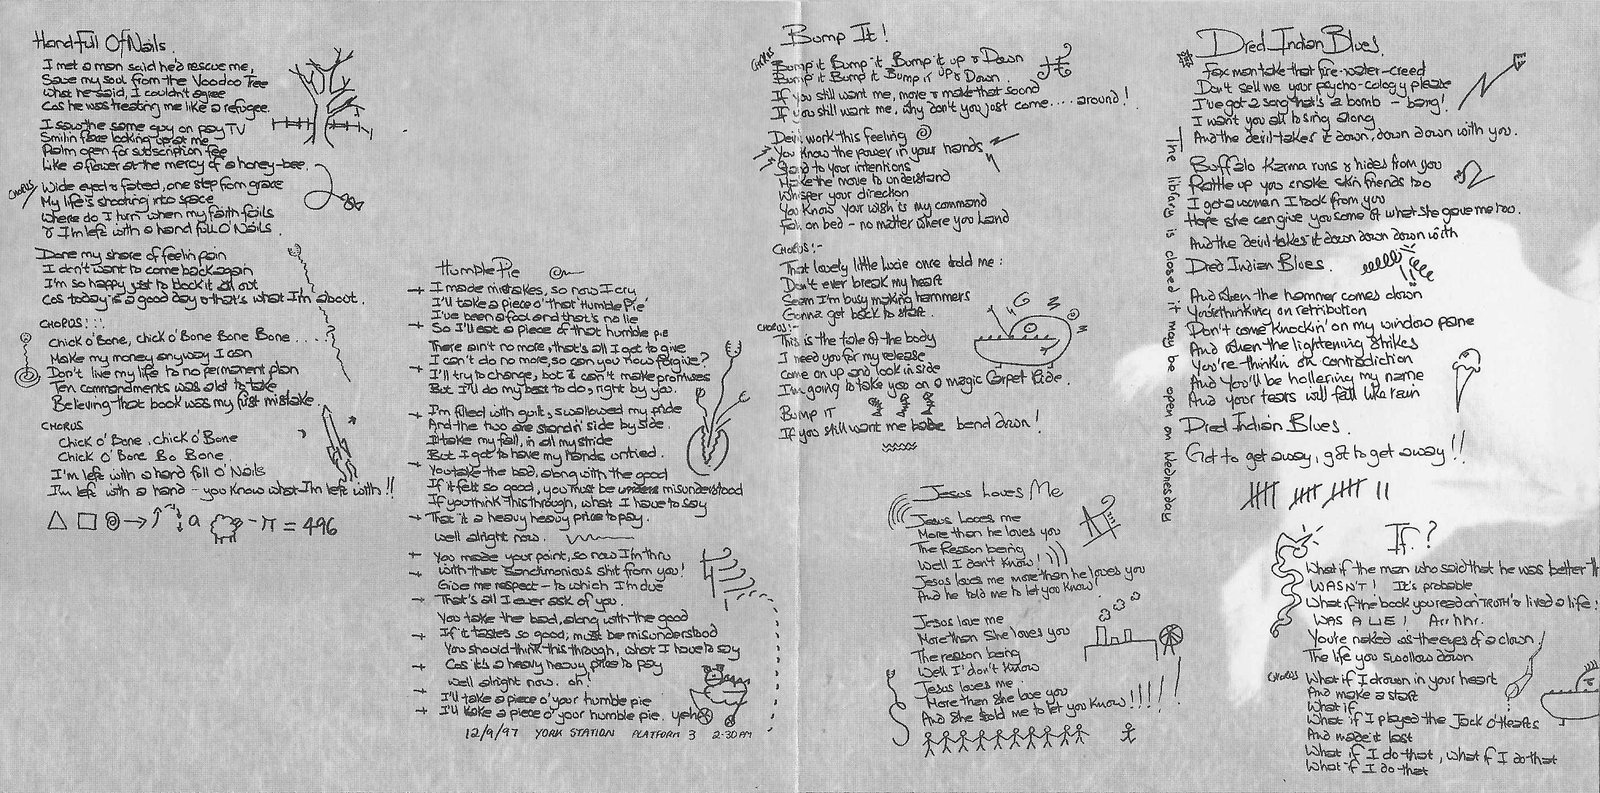 Handfull Of Nails.
I met a man said he'd rescue me,
Save my soul from the Voodoo Tree
What he said, I couldn't agree
Cos he was treating me like a refugee.
I saw the same guy on pay TV
Smilin face looking up at me
Palm open for subscription fee
Like a flower at the mercy of a honey-bee.
CHORUS
Wide eyed & fated, one step from grace
My life's shooting into space
Where do I turn when my faith fails
& I'm left with a hand full O'Nails.
Done my share of feelin pain
I don't want to come back again
I'm so happy just to block it all out
Cos today is a good day & that's what I'm about.
CHORUS!!!
Chick o'Bone, chick o'Bone Bone Bone.....
Make my money anyway I can
Don't live my life to no permanent plan
Ten commandments was a lot to take
Believing that book was my first mistake.
CHORUS
Chick o'Bone, chick o'Bone
Chick o'Bone Bo Bone.
I'm left with a hand full o'Nails
I'm left with a hand - you know what I'm left with!!
a - π = 496
Humble Pie
I made mistakes, so now I cry
I'll take a piece o' that 'Humble Pie'
I've been a fool and that's no lie
So I'll eat a piece of that humble pie
There ain't no more, that's all I got to give
I can't do no more, so can you now forgive?
I'll try to change, but I can't make promises
But I'll do my best to do, right by you.
I'm filled with guilt, swallowed my pride
And the two are standin' side by side.
I take my fall, in all my stride
But I got to have my hands untied.
You take the bad, along with the good
If it felt so good, you must be misunderstood
If you think this through, what I have to say
That it's a heavy heavy price to pay.
Well alright now.
You made your point, so now I'm thru
With that sanctimonious shit from you!
Give me respect - to which I'm due
That's all I ever ask of you.
You take the bad, along with the good
If it tastes so good, must be misunderstood
You should think this through, what I have to say
Cos it's a heavy heavy price to pay
Well alright now. oh!
I'll take a piece o'your humble pie
I'll take a piece o'your humble pie. yeh
12/9/97 YORK STATION PLATFORM 3 2.30 PM
Bump It!
CHORUS
Bump it Bump it Bump it up & Down
Bump it Bump it Bump it up & Down.
If you still want me, move & make that sound
If you still want me, why don't you just come.... around!
Devil work this feeling
You know the power in your hands
Stand to your intentions
Make the move to understand
Whisper your direction
You know your wish is my command
Fall on bed - no matter where you land
CHORUS:-
That lovely little Lucie once told me:
Don't ever break my heart
Seam I'm busy making hammers
Gonna get back to start.
CHORUS:-
This is the tale of the body
I need you for my release
Come on up and look inside
I'm going to take you on a magic Carpet Ride.
Bump IT
If you still want me babe bend down!
Jesus Loves Me
Jesus Loves me
More than he loves you
The Reason being
Well I don't know!
Jesus loves me more than he loves you
And he told me to let you know!
Jesus love me
More than She loves you
The reason being
Well I don't know
Jesus loves me
More than She love you
And She told me to let you know!!!!!
Dred Indian Blues.
Fox man take that fire-water-creed
Don't sell me your psycho-cology please
I've got a song that's a bomb - bang!
I want you all to sing along
And the devil takes it down, down down with you.
Buffalo Karma runs & hides from you
Rattle up you snake skin friends too
I got a woman I took from you
Hope she can give you some of what she gave me too.
And the devil takes it down down down with
Dred Indian Blues.
And when the hammer comes down
You're thinking on retribution
Don't come knockin' on my window pane
And when the lightening strikes
You're thinkin on contradiction
And you'll be hollering my name
And your tears will fall like rain
Dred Indian Blues.
Got to get away, got to get away!!
The library is closed it may be open on Wednesday
If.?
What if the man who said that he was better th
WASN'T! It's probable
What if the book you read on 'TRUTH' & lived a life!
WAS A LIE! Arr hhr.
You're naked as the eyes of a clown
The life you swallow down
CHORUS
What if I drown in your heart
And make a start
What if
What if I played the Jack o'Hearts
And made it last
What if I do that, what if I do that
What if I do that